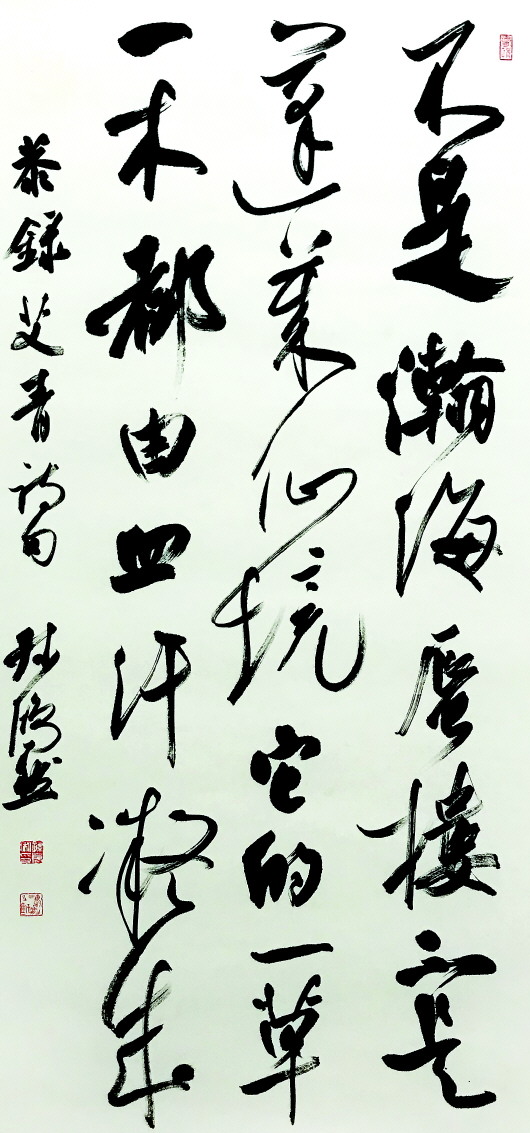 不是瀚海蜃楼不是
蓬莱仙境它的一草
一木都由血汗凝成
恭録艾青诗句